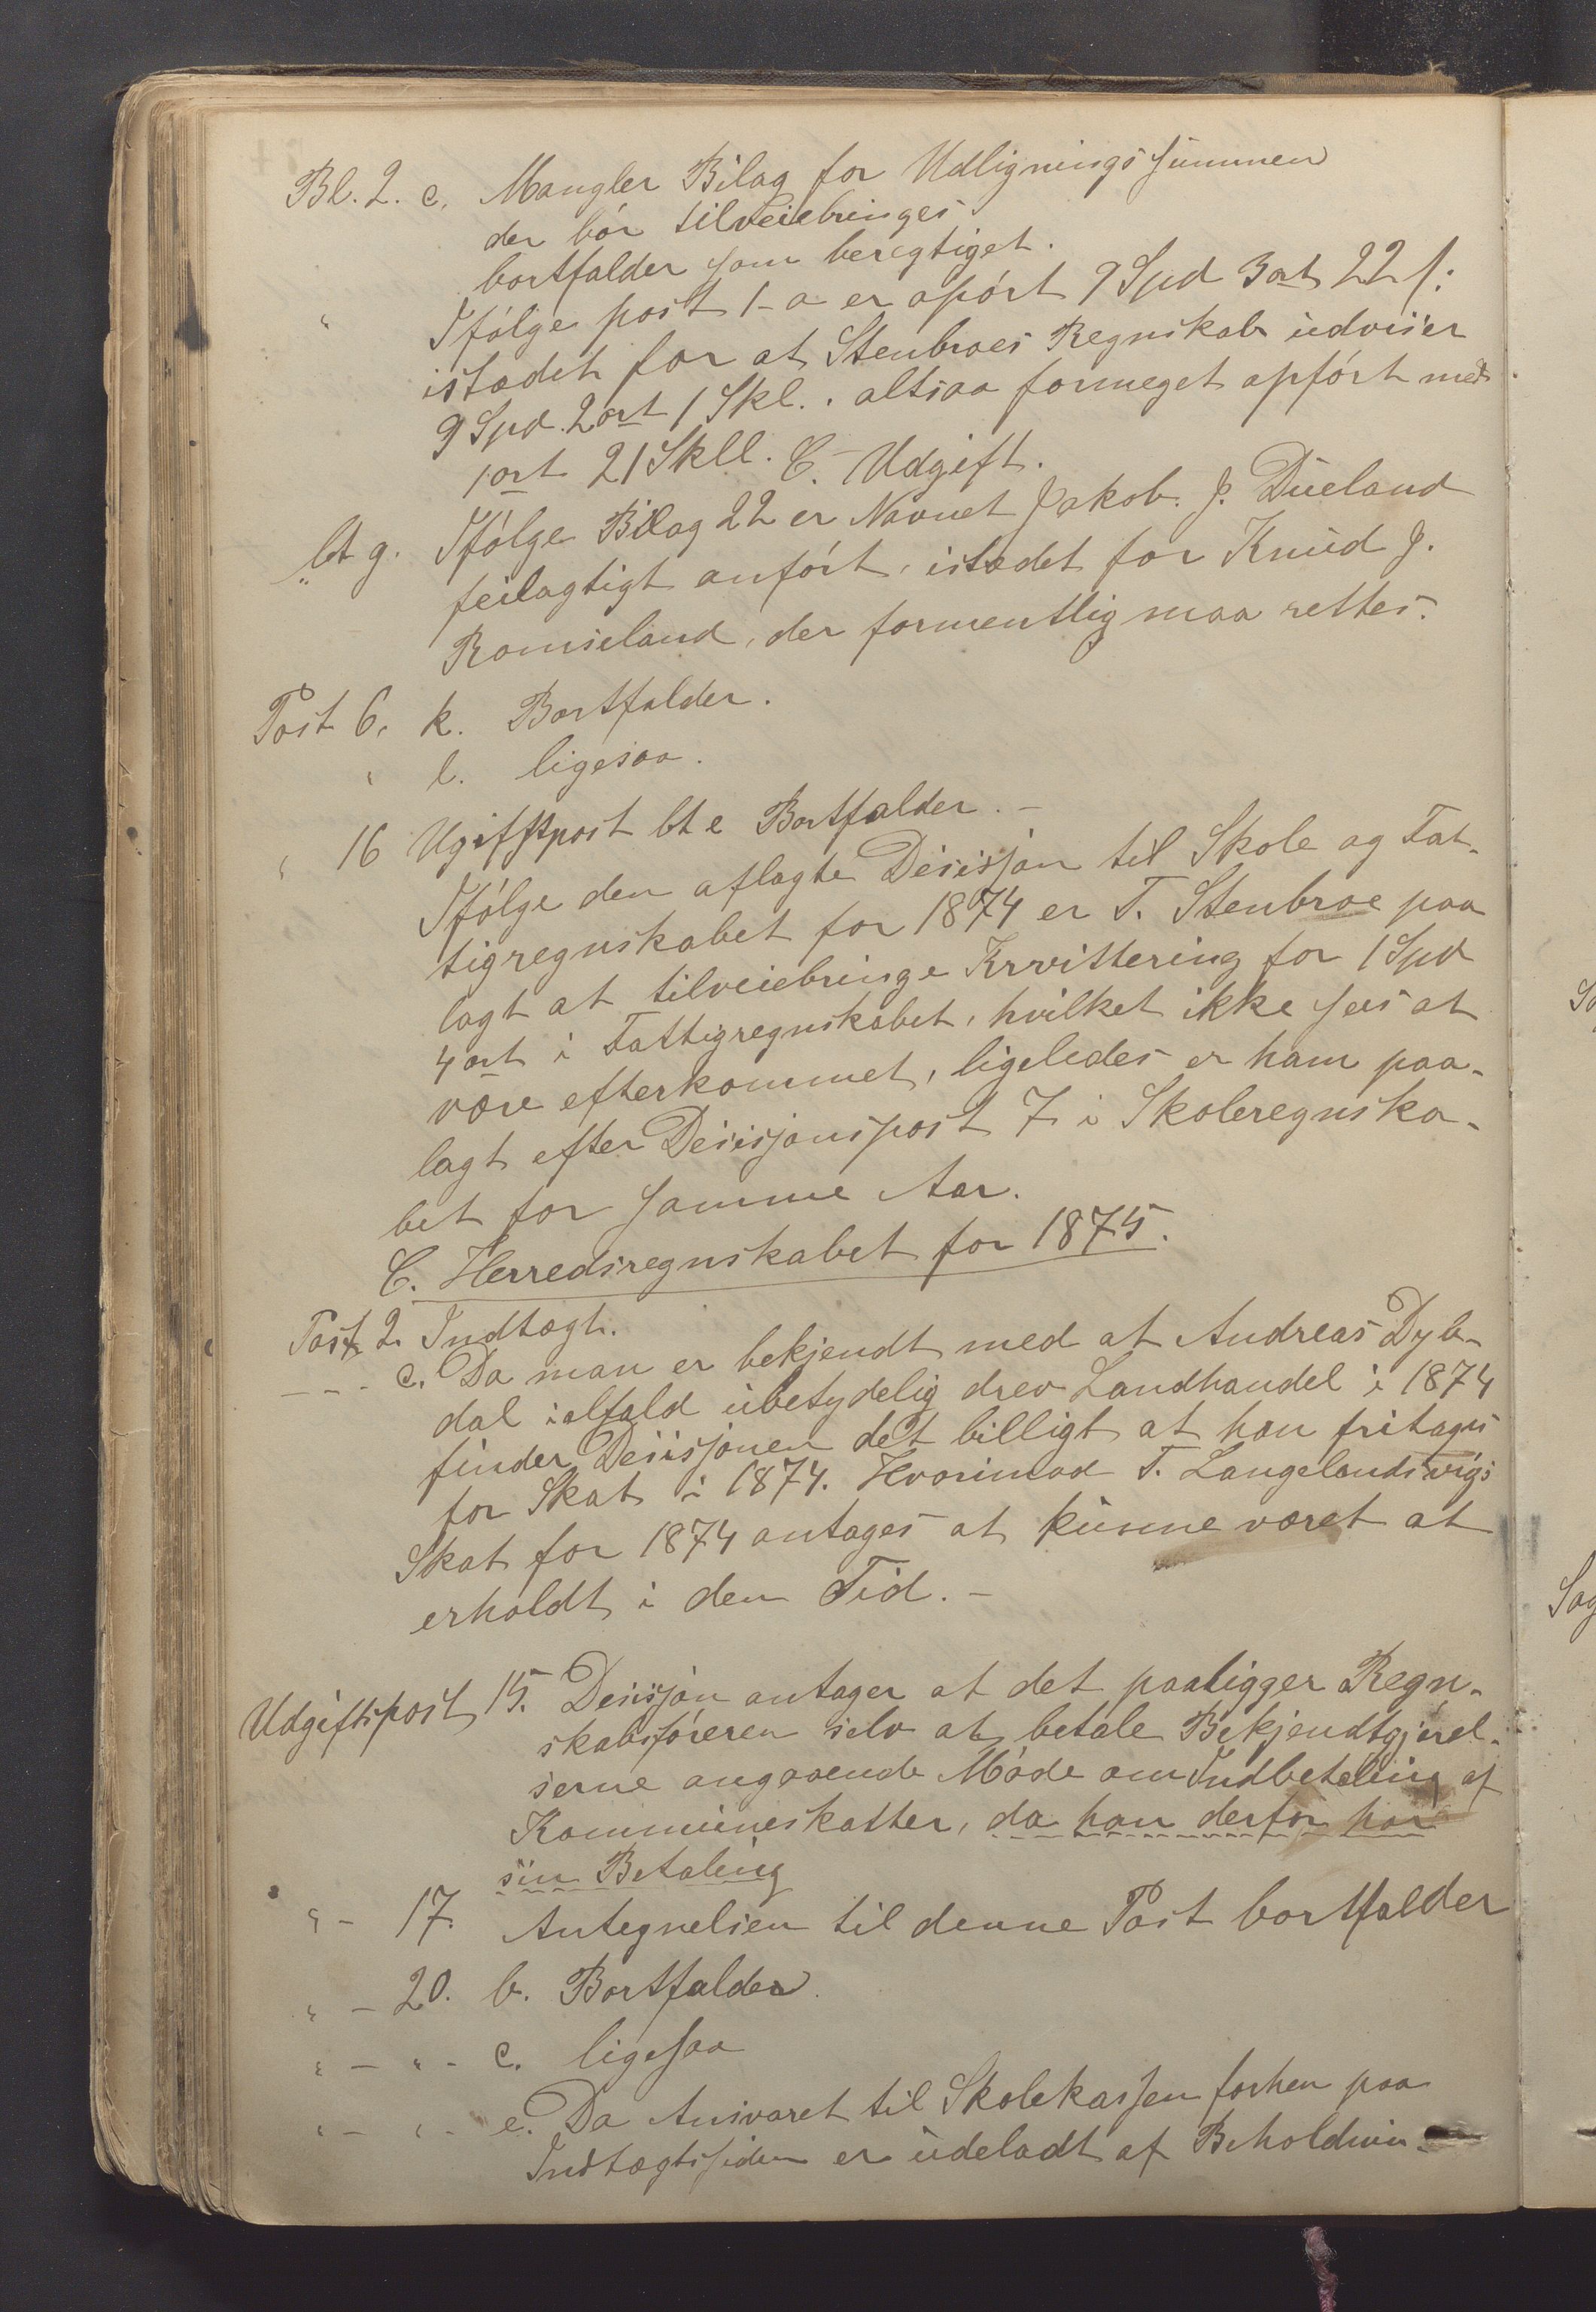 Bl. 2. c. Mangler Bilag for Udligningssummen
der bór tilveiebringes
bortfalder som beregtiget.
" Ifólge post 1-a er opórt 9 Spd 3 ort 22 s:
istædet for at Stenbroes Regnskab udviser
9 Spd. 2 ort 1 Skl. . altsaa formeget opfórt med
1 ort 21 Skll. C. Udgift.
" lt g. Ifólge Bilag 22 er Navnet Jakob. J. Dueland
feilagtigt anfórt, istædet for Knud J.
Romseland, der formentlig maa rettes.
Post 6. k. Bortfalder.
" l. ligesaa.
" 16 Ugiftpost lt e Bortfalder. -
Ifólge den aflagte Desisjon til Skole og Fat-
tigregnskabet for 1874 er T. Stenbroe paa
lagt at tilveiebringe Krvittering for 1 Spd
4 ort i Fattigregnskabet, hvilket ikke sees at
være efterkommet, ligeledes er ham paa-
lagt efter Desisjonspost 7 i Skoleregnska-
bet for samme Aar.
C. Herredsregnskabet for 1875.
Post 2. Indtægt.
- - - c. Da man er bekjendt med at Andreas Dyb-
dal ialfald ubetydelig drev Landhandel i 1874
finder Desisjonen det billigt at han fritages
for Skat i 1874. Hvorimod T. Langelandsvigs
Skat for 1874 antages at kunne været at
erholdt i den Tid. -
Udgiftspost 15. Desisjon antager at det paaligger Regn-
skabsfóreren selv at betale Bekjendtgjørel-
serne angaaende Móde om Indbetaling af
Kommuneskatter, da han derfor har
sin Betaling
" - 17. Antegnelsen til denne Post bortfalder
" - 20. b. Bortfalder.
" - " - c. ligesaa
" - " - e. Da Ansvaret til Skolekassen forhen paa
Indtægtssiden er udeladt af Beholdnin-